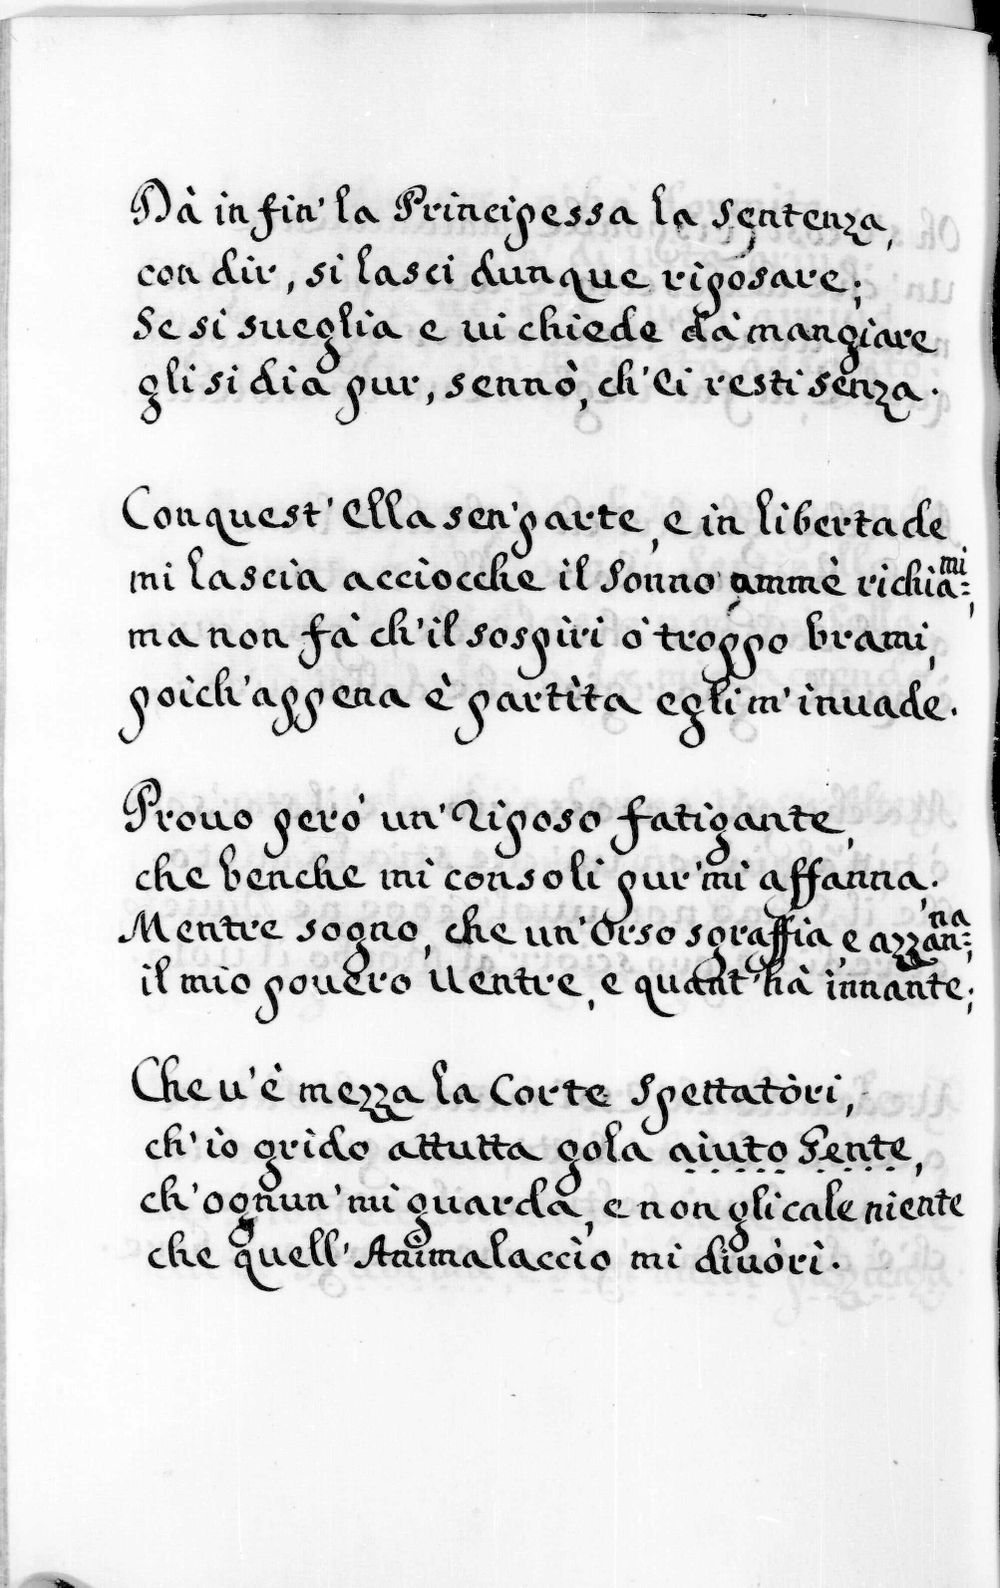 Dà in fin' la Principessa la sentenza,
con dir, si lasci dunque riposare;
Se si sueglia e ui chiede dà mangiare
gli si dia pur, sennò, ch'ei resti senza.
Conquest' Ella sen' parte, e in libertade
mi lascia acciocche il Sonno ammè richia=mi,
ma non fà ch'il sospiri ò troppo brami,
poich' appena è partita egli m' inuade.
Prouo però un' Riposo fatigante,
che benche mi consoli pur' mi affanna.
Mentre sogno, che un' Orso sgraffia, e azzan=na;
il mio pouero Uentre, e quant' hà innante;
Che u' è mezza la Corte Spettatòri,
ch' io grido attutta gola aiuto Gente,
ch' ognun' mi guarda, e non gli cale niente
che quell' Animalaccio mi diuòri.